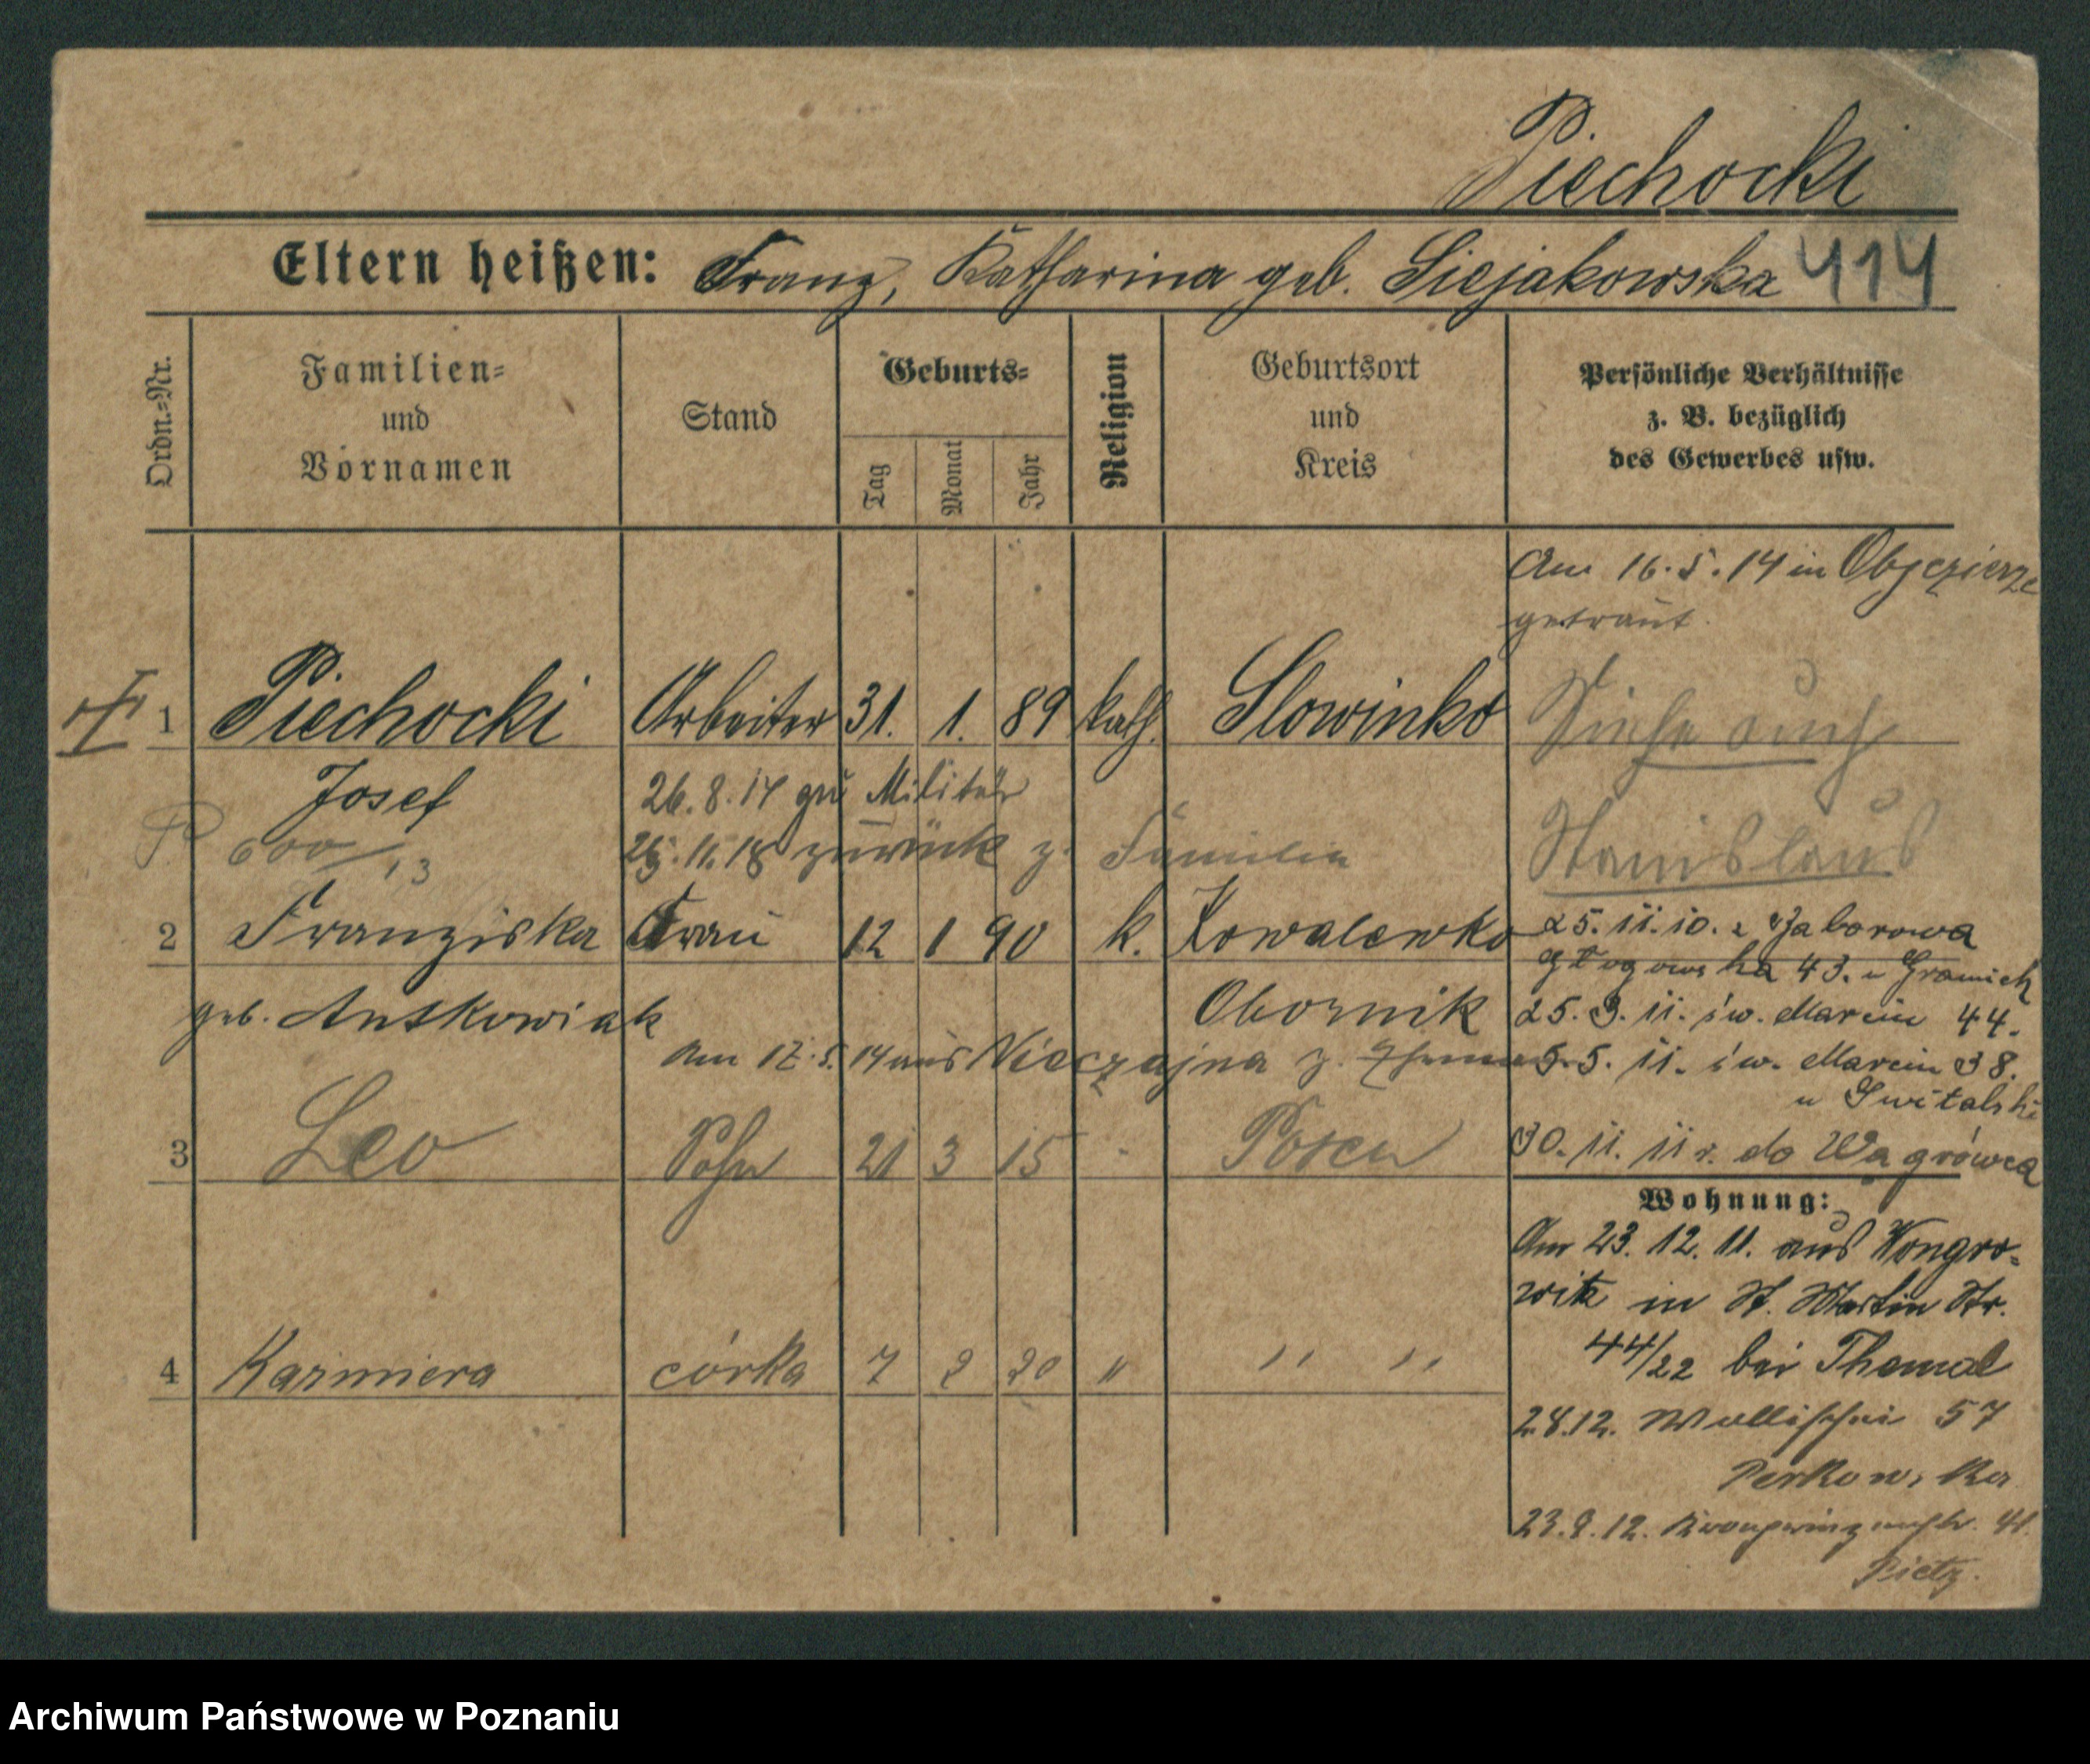 Piechocki
Eltern heißen: Franz, Katharina geb. Siejakowska 414
Ordn.-Nr.
Familien- und Vornamen
Stand
Geburts-
Tag
Monat
Jahr
Religion
Geburtsort und Kreis
Persönliche Verhältnisse z. B. bezüglich des Gewerbes usw.
Am 16.5.14 in Objezierze
getraut.
1 Piechocki Arbeiter 31. 1. 89 kath. Slowinko
Siehe auch
Josef 26.8.14 zu Militär
Stanislaus
P. 600/13 25.11.18 zurück z. Familie
2 Franziska Frau 12 1 90 k. Kowalewko
geb. Antkowiak Obornik
Am 17.5.14 aus Nieczajna z.
25.11.10. z Zaborowa
Głogowska 43. u
25.3.11. św. Marcin 44.
5.5.11. św. Marcin 38.
u Switalski
30.11.11 r. do Wągrówca
3 Leo Sohn 21 3 15 Posen
Wohnung:
Am 23.12.11. aus Wongro-
witz in St. Martin Str.
44/22 bei Themal
4 Kazimiera córka 7 2 20 " " "
2.8.12. Wallischei 57
Perkowska
23.9.12. Kronprinzenstr.